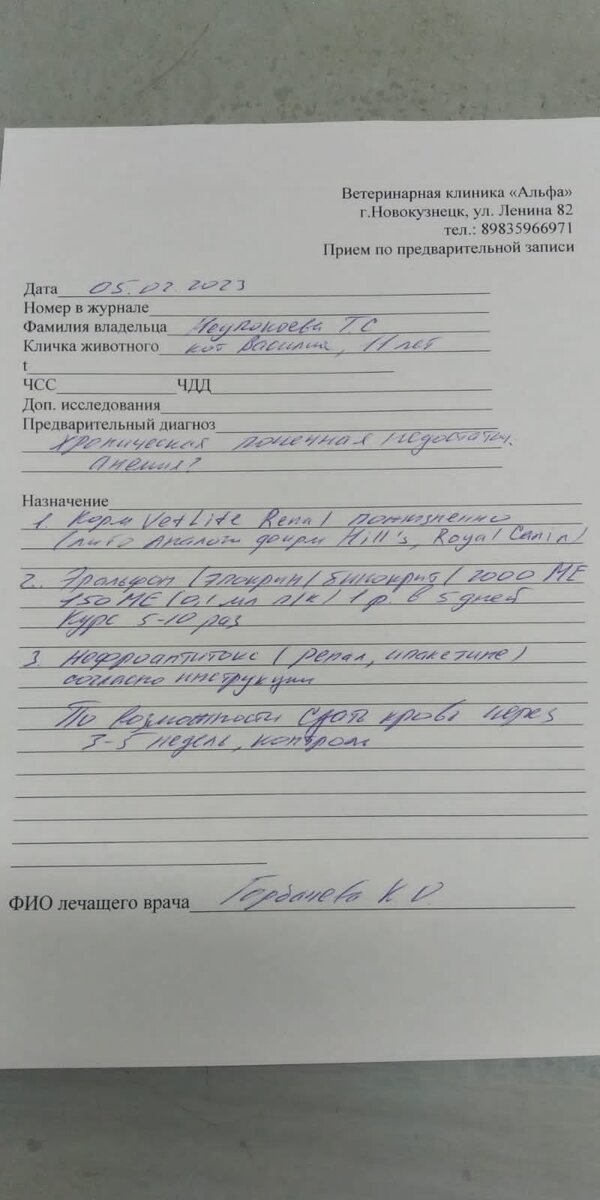 Ветеринарная клиника «Альфа»
г.Новокузнецк, ул. Ленина 82
тел.: 89835966971
Прием по предварительной записи
Дата 05.02.2023
Номер в журнале
Фамилия владельца Неупокоева Т.С
Кличка животного кот Василий, 11 лет
t
ЧСС ЧДД
Доп. исследования
Предварительный диагноз
Хроническая почечная недостаточ.
анемия?
Назначение
1. Корм VetLife Renal пожизненно
(либо аналоги фирм Hill's, Royal Canin)
2. Эральфон (эпокрин/бинокрит) 2000 МЕ
150 МЕ (0,1 мл п/к) 1 р. в 5 дней
Курс 5-10 раз
3. Нефроантитокс (ренал, ипакетине)
согласно инструкции
По возможности сдать кровь через
3-5 недель, контроль
ФИО лечащего врача Горбачева К.О.